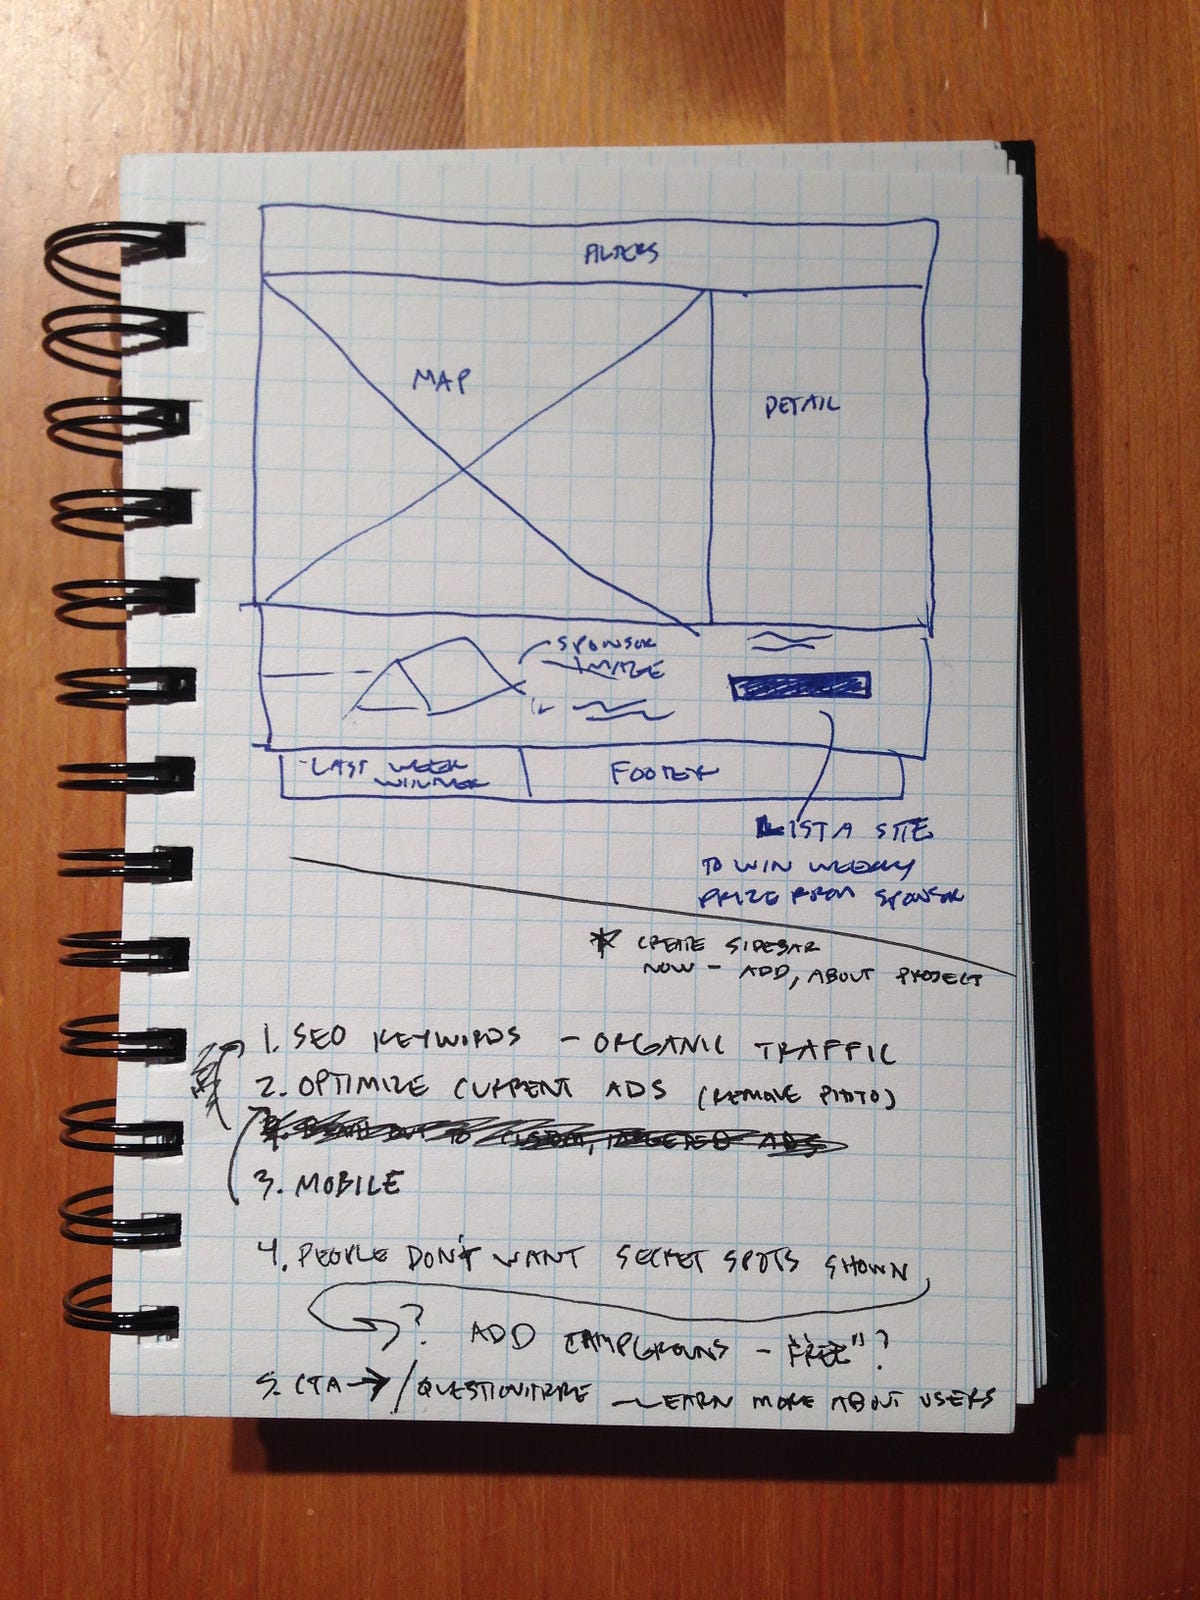 FILTERS
MAP
DETAIL
SPONSOR
IMAGE
LAST WEEK
WINNER
FOOTER
LIST A SITE
TO WIN WEEKLY
PRIZE FROM SPONSOR
* CREATE SIDEBAR
NOW - ADD, ABOUT PROJECT
1. SEO KEYWORDS - ORGANIC TRAFFIC
2. OPTIMIZE CURRENT ADS (REMOVE PHOTO)
TO CUSTOM, TARGETED ADS
3. MOBILE
4. PEOPLE DON'T WANT SECRET SPOTS SHOWN
? ADD CAMPGROUNS - "FREE"?
5. CTA → / QUESTIONITRE - LEARN MORE ABOUT USERS